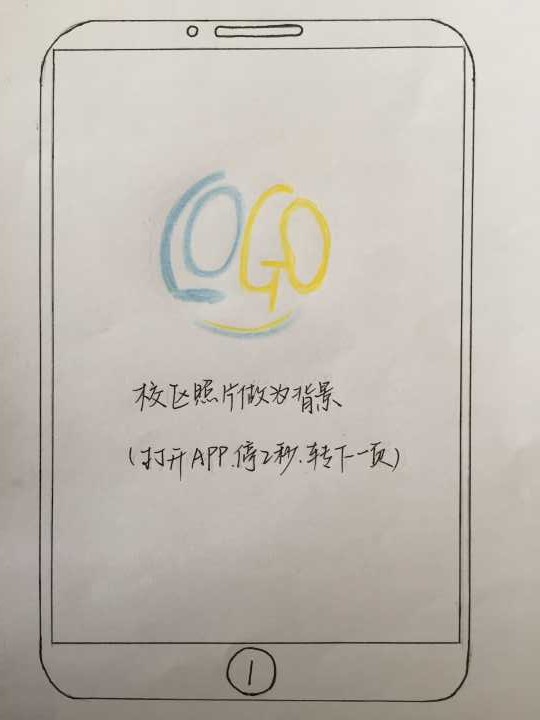 LOGO
校区照片做为背景
(打开APP.停2秒.转下一页)
1